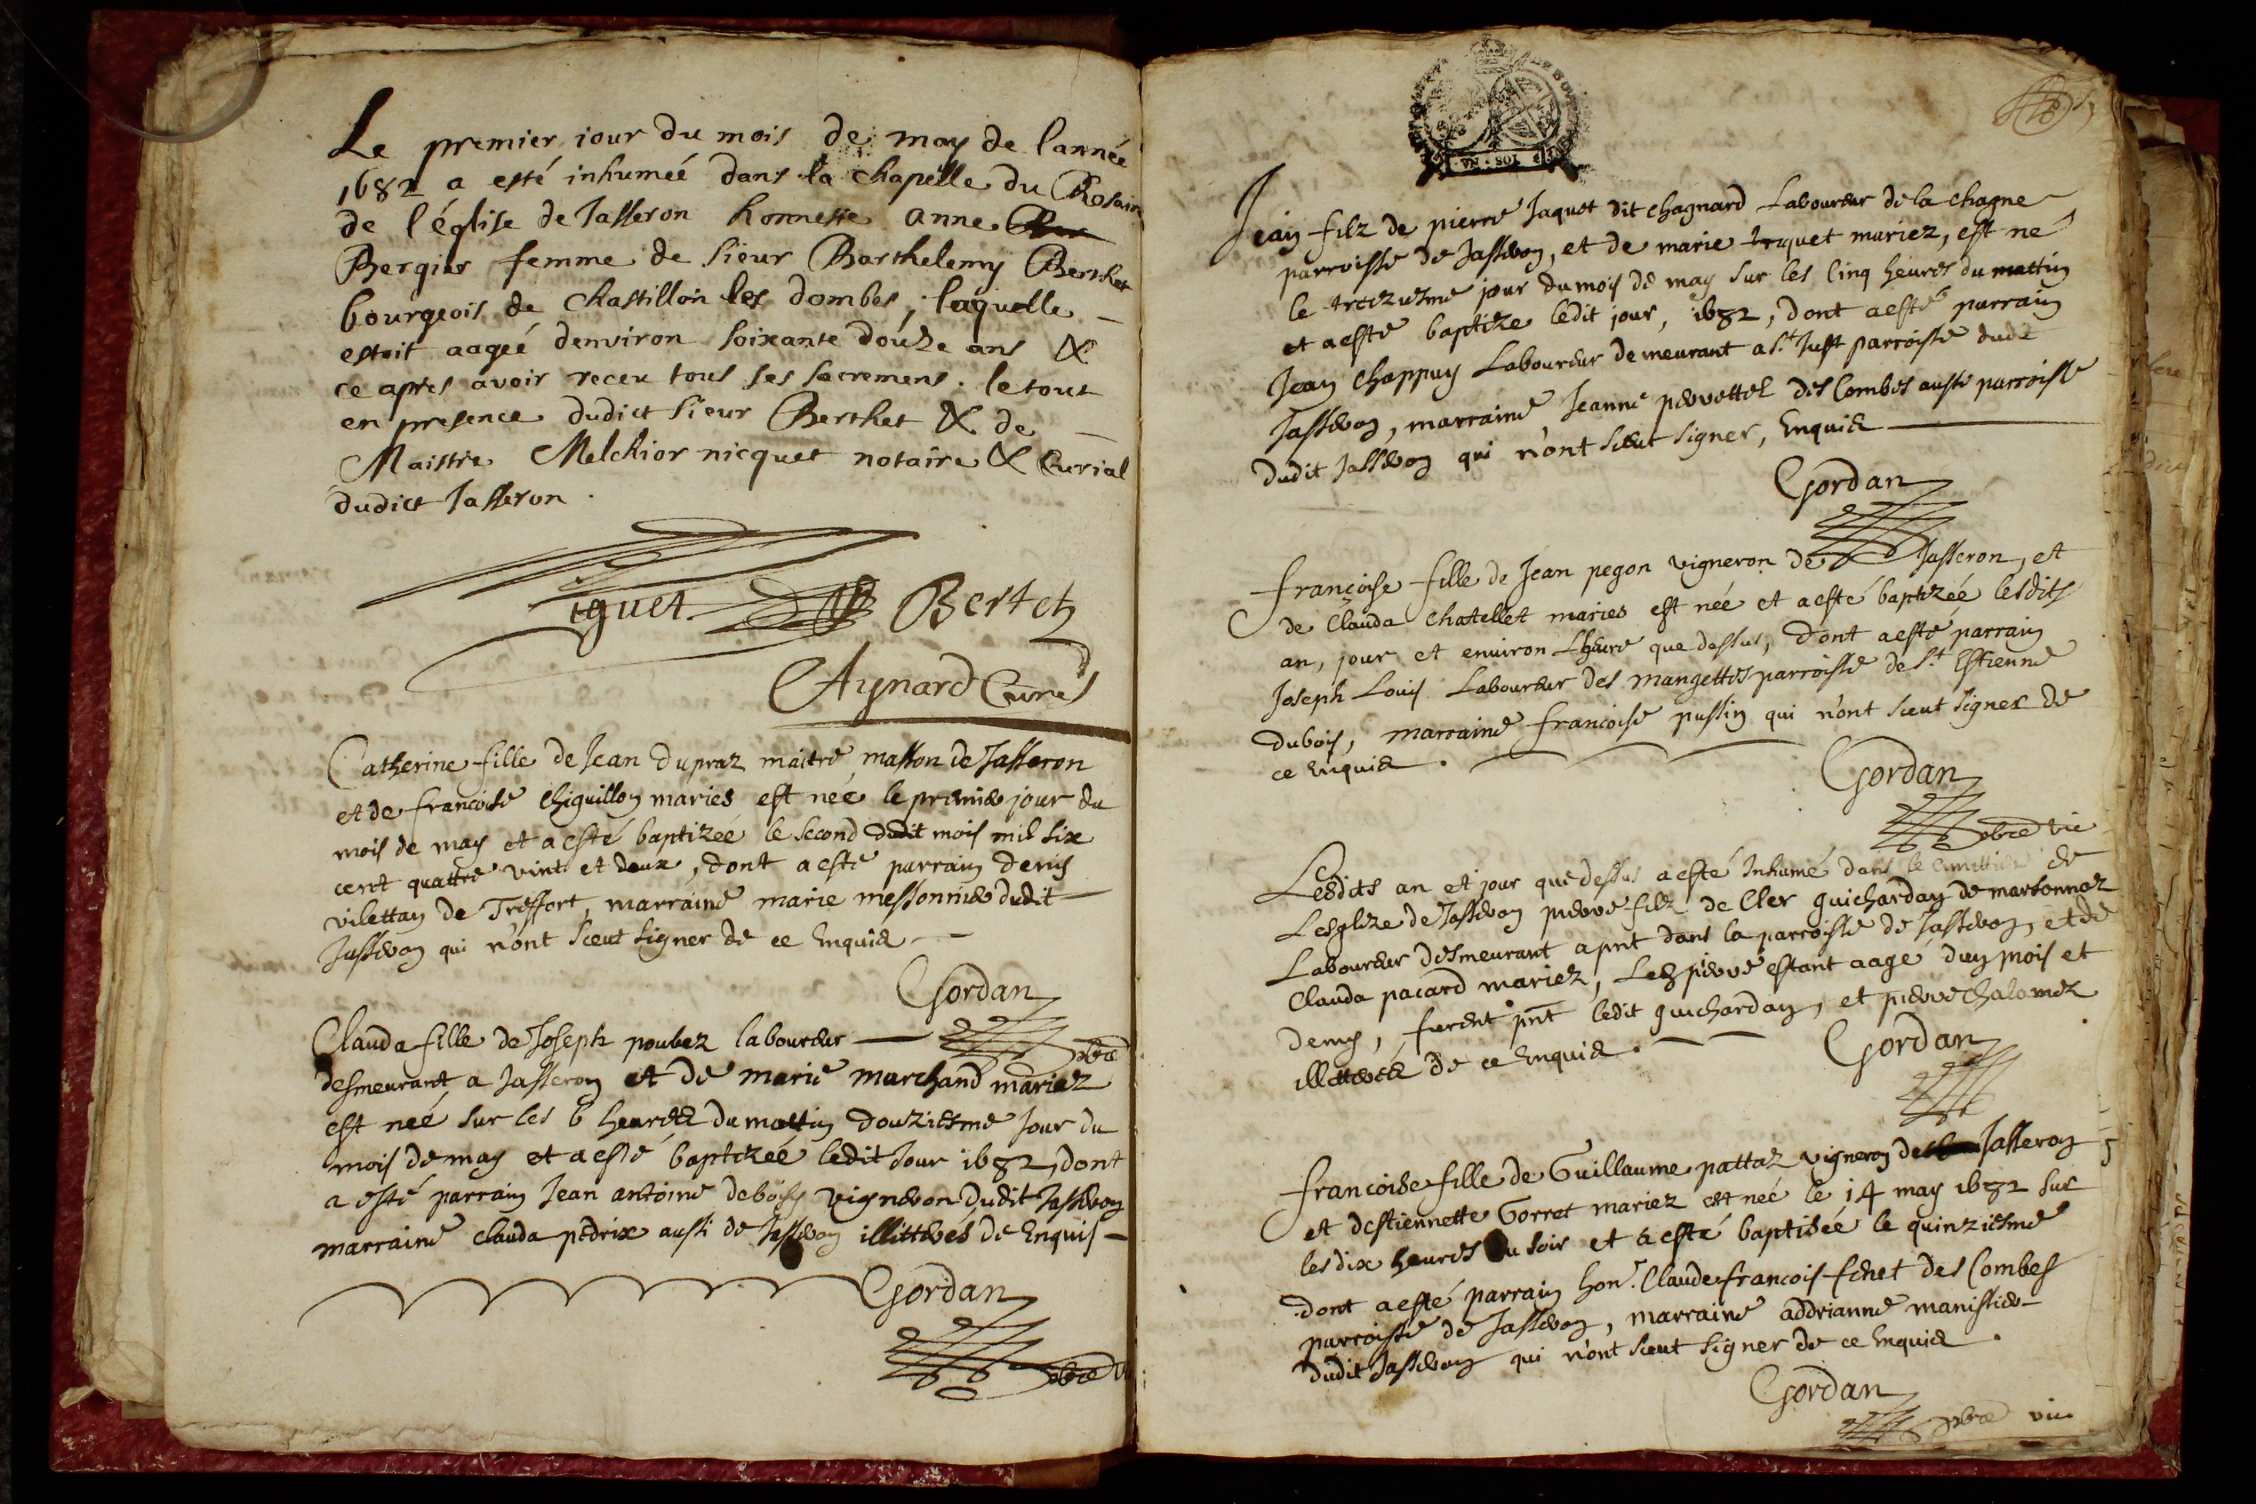 Le premier iour du mois de may de l'année
1682 a esté inhumée dans la chapelle du Rosaire
de l'église de Jasseron honneste anne
Bergier femme de sieur Barthelemy Berthet
bourgeois de Chastillon les dombes, laquelle
estoit aageé denviron soixante douze ans &
ce apres avoir receu tous ses sacremens. le tout
en presence dudict sieur Berthet & de
Maistre Melchior nicquet notaire & Curial
dudict Jasseron.
iquet Bertet
Aynard Curé
Catherine fille de Jean dupraz maitre masson de Jasseron
et de francoise Chiguillon mariés est neé le premier jour du
mois de may et a esté baptizeé le second dudit mois mil six
cent quattre vint et deux, dont a esté parrain denis
vilettan de Treffort, marraine marie messonnier dudit
Jasseron qui n'ont sceut signer de ce Enquis
Gordan
Clauda fille de Joseph poubez laboureur
pbre
desmeurant a Jasseron et de marie marchand mariez
est neé sur les 6 heures du mattin douziesme Jour du
mois de may et a esté baptizeé ledit Jour 1682, dont
a esté parrain Jean antoine deboisy vigneron dudit Jasseron
marraine clauda pedrix aussi de Jasseron illitterés de Enquis
Gordan
pbre
Jean filz de pierre Jaquet dit chagnard Laboureur de la chagne
parroisse de Jasseron, et de marie Jaquet mariez, est né
le treziesme jour du mois de may sur les cinq heures du mattin
et a esté baptize ledit jour, 1682, dont a esté parrain
Jean Chappuy Laboureur demeurant a St Just parroisse dudit
Jasseron, marraine Jeanne perrettel des Combes aussi parroisse
dudit Jasseron qui n'ont sceut signer, Enquis
Gordan
françoise fille de Jean pegon vigneron de Jasseron, et
de Clauda Chatellet maries est née et a esté baptizeé lesdits
an, jour et environ L'heure que dessus, dont a esté parrain
Joseph Louis Laboureur des mangettes parroisse de St Estienne
dubois, marraine francoise pussin qui n'ont sceut signer de
ce Enquis.
Gordan
pbre vic
Lesdits an et jour que dessus a esté Inhumé dans le cimettiere de
Lesglize de Jasseron pierre filz de Cler guichardan de martonnez
Laboureur desmeurant apnt dans la parroisse de Jasseron, et de
Clauda pacard mariez, Led pierre estant aagé d'un mois et
demy, furent pnt ledit guichardan, et pierre Chalomez
illetterés de ce Enquis.
Gordan
francoise fille de Guillaume pattaz vigneron de Jasseron
et d'estiennette Gorret mariez est neé le 14 may 1682 sur
les dix heures du soir et a esté baptiseé le quinziesme
dont a esté parrain hon. Claude francois fenet des Combes
parroisse de Jasseron, marraine addrianne manissier
dudit Jasseron qui n'ont sceut signer de ce Enquis.
Gordan
pbre vic